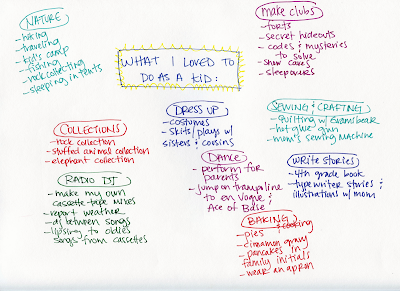 NATURE
-hiking
-traveling
-kid's camp
-fishing
-rock collecting
-sleeping in tents
WHAT I LOVED TO
DO AS A KID:
make clubs
-forts
-secret hideouts
-codes & mysteries
to solve
-snow caves
-sleepovers
COLLECTIONS
-rock collection
-stuffed animal collection
-elephant collection
DRESS UP
-costumes
-skits/plays w/
sisters & cousins
SEWING & CRAFTING
-quilting w/
-hot glue gun
-mom's sewing machine
RADIO DJ
-make my own
cassette-tape mixes
-report weather
-dj between songs
-lipsing to oldies
songs from cassettes
DANCE
-perform for
parents
-jump on trampoline
to en vogue &
Ace of Base
write stories
-4th grade book
-typewriter stories &
illustrations w/ mom
BAKING & cooking
-pies
-cinnamon gravy
-pancakes in
family initials
-wear an apron